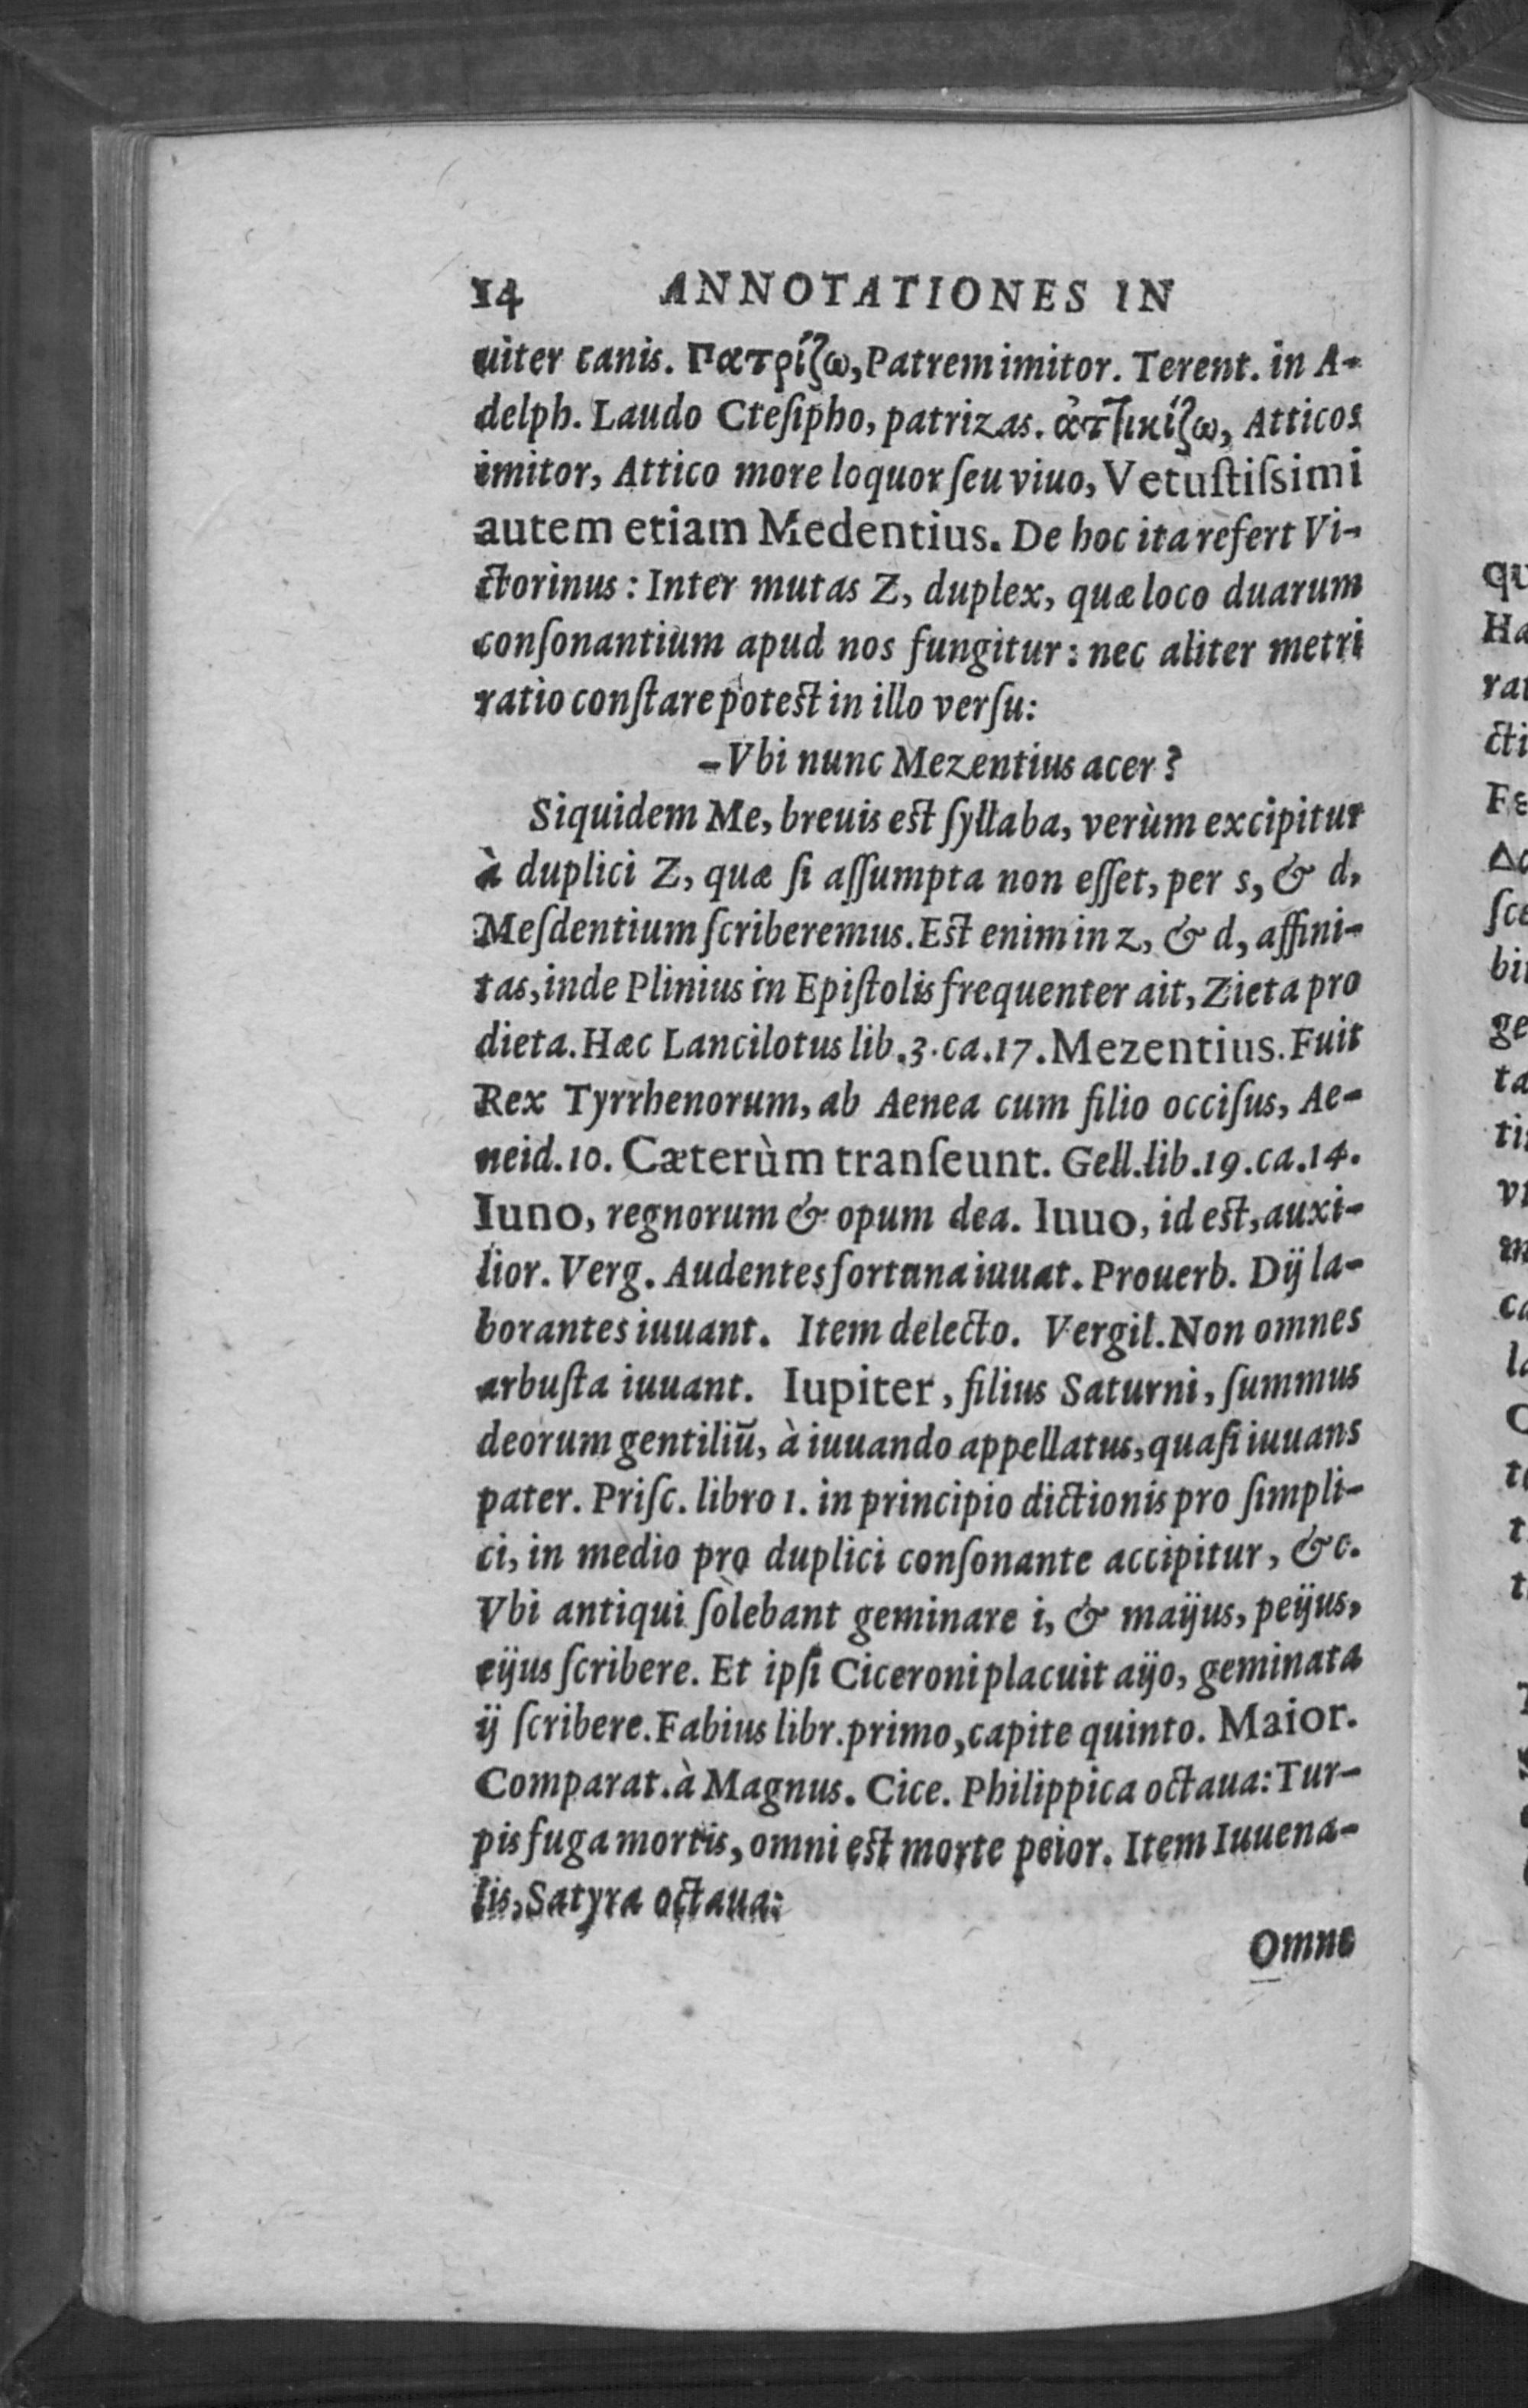 14 ANNOTATIONES IN
uiter canis. Πατρίζω, Patrem imitor. Terent. in A-
delph. Laudo Cteſipho, patrizas. ἀττικίζω, Atticos
imitor, Attico more loquor ſeu viuo, Vetuſtiſsimi
autem etiam Medentius. De hoc ita refert Vi-
ctorinus: Inter mutas Z, duplex, quæ loco duarum
conſonantium apud nos fungitur: nec aliter metri
ratio conſtare poteſt in illo verſu:
-Vbi nunc Mezentius acer?
Siquidem Me, breuis eſt ſyllaba, verùm excipitur
à duplici Z, quæ ſi aſſumpta non eſſet, per s, & d,
Meſdentium ſcriberemus. Eſt enim in z, & d, affini-
tas, inde Plinius in Epiſtolis frequenter ait, Zieta pro
dieta. Hæc Lancilotus lib.3.ca.17. Mezentius. Fuit
Rex Tyrrhenorum, ab Aenea cum filio occiſus, Ae-
neid.10. Cæterùm tranſeunt. Gell.lib.19.ca.14.
Iuno, regnorum & opum dea. Iuuo, id eſt, auxi-
lior. Verg. Audentes fortuna iuuat. Prouerb. Dij la-
borantes iuuant. Item delecto. Vergil. Non omnes
arbuſta iuuant. Iupiter, filius Saturni, ſummus
deorum gentiliũ, à iuuando appellatus, quaſi iuuans
pater. Priſc. libro 1. in principio dictionis pro ſimpli-
ci, in medio pro duplici conſonante accipitur, &c.
Vbi antiqui ſolebant geminare i, & maijus, peijus,
eijus ſcribere. Et ipſi Ciceroni placuit aijo, geminata
ij ſcribere. Fabius libr. primo, capite quinto. Maior.
Comparat. à Magnus. Cice. Philippica octaua: Tur-
pis fuga mortis, omni eſt morte peior. Item Iuuena-
lis, Satyra octaua:
Omne
qu
Ha
rat
cti
Fε
Δ
ſce
bi
ge
ta
ti
m
ca
la
t
t